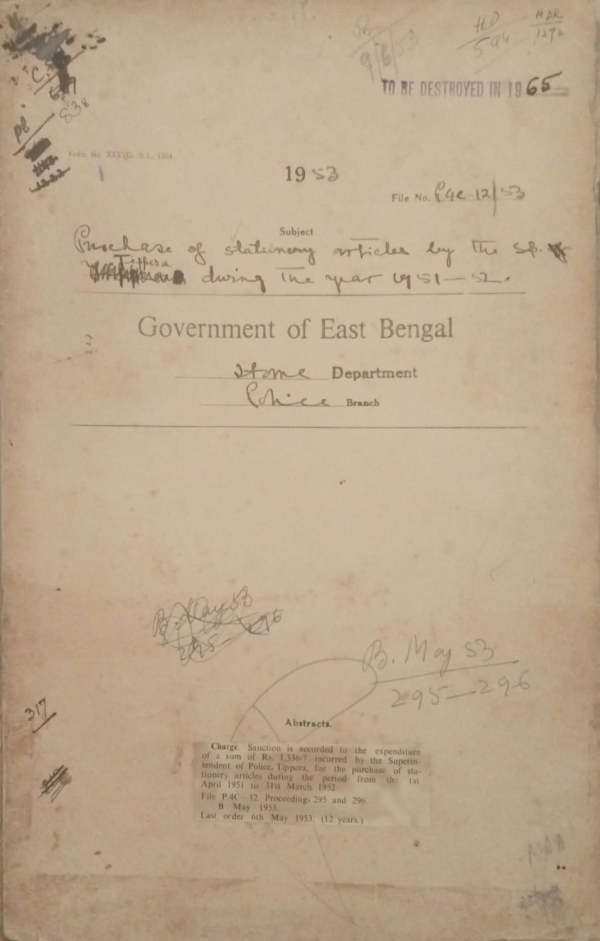 9/6/53
HD
594
MDR
1292
TO BE DESTROYED IN 1965
838
Form No.
1953
File No. P4C-12/53
Subject
Purchase of stationery articles by the S.P.
Tippera during the year 1951-52.
Government of East Bengal
Home Department
Police Branch
B. May 53
295-296
B. May 53
295-296
317
Abstracts.
Charge. Sanction is accorded to the expenditure
of a sum of Rs. 1,336-7 incurred by the Superin-
tendent of Police, Tippera, for the purchase of sta-
tionery articles during the period from the 1st
April 1951 to 31st March 1952.
File P.4C—12. Proceedings 295 and 296
B May 1953.
Last order 6th May 1953. (12 years.)